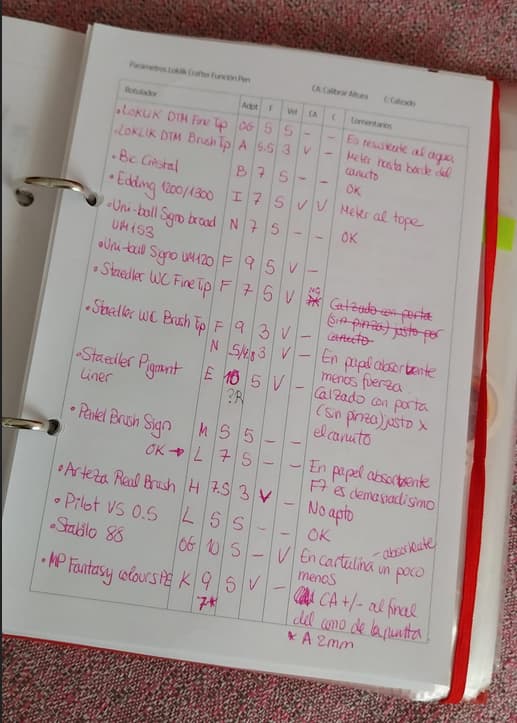 Parámetros Loklik Crafter Función Pen CA: Calibrar Altura C: Calzado
Rotulador Adpt F Vel CA C Comentarios
• LOKLIK DTM Fine Tip OG 5 5 – – Es resistente al agua
• LOKLIK DTM Brush Tip A 5.5 3 V – Meter hasta borde del canuto
• Bic Cristal B 7 5 – – OK
• Edding 1200/1300 I 7 5 V V Meter al tope
• Uni-ball Signo broad N 7 5 – – OK
UM153
• Uni-ball Signo UM120 F 9 5 V –
• Staedler WC Fine Tip F 7 5 V NO Calzado con porta
(sin pinza) justo por
canuto
• Staedler WC Brush Tip F 9 3 V –
N 3 V – En papel absorbente
menos fuerza
• Staedler Pigment E 5 V – Calzado con porta
Liner ?R (sin pinza) justo x
el canuto
• Pentel Brush Sign M 5 5 – –
OK → L 7 5 – – En papel absorbente
F7 es demasiadísimo
• Arteza Real Brush H 7.5 3 V – No apto
• Pilot V5 0.5 L 5 5 – – OK
• Stabilo 88 OG 10 5 – V En cartulina absorbente un poco
menos
• MP Fantasy colours K 9 5 V – CA +/- al final
7* del cono de la puntta
* A 2mm